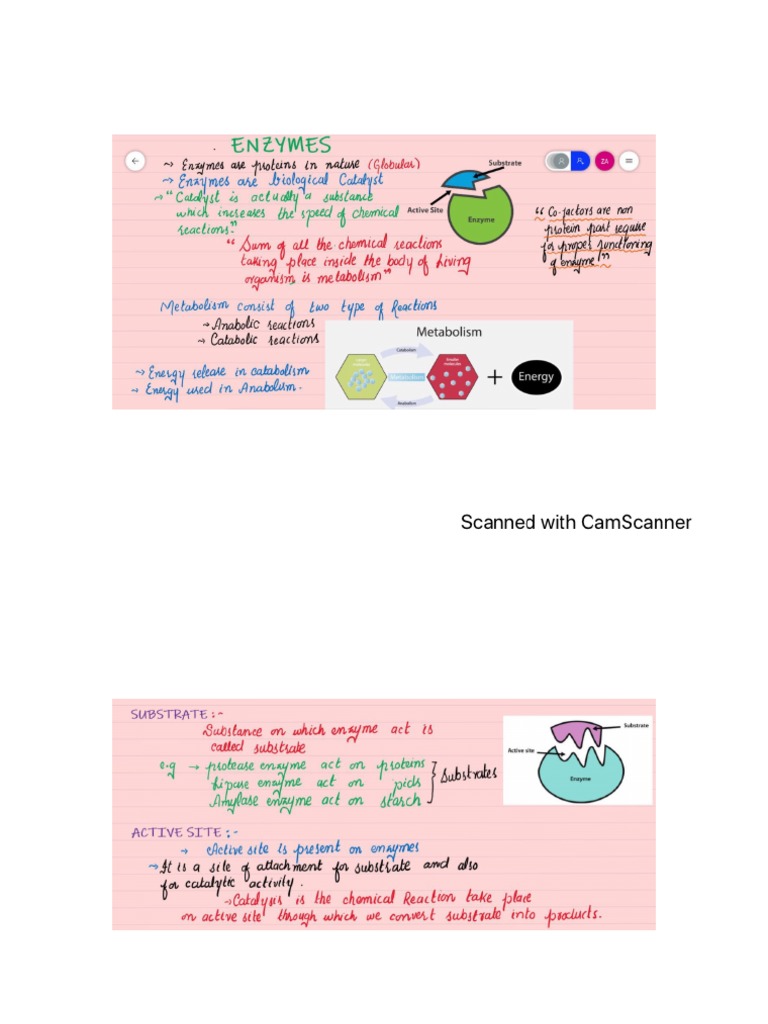 ENZYMES
~> Enzymes are proteins in nature (Globular)
-> Enzymes are biological Catalyst
-> "Catalyst is actually a substance
which increases the speed of chemical
reactions."
Substrate
Active Site
Enzyme
ZA
"Co-factors are non
protein part require
for proper functioning
of enzyme"
"Sum of all the chemical reactions
taking place inside the body of living
organism is metabolism"
Metabolism consist of two type of Reactions
-> Anabolic reactions
-> Catabolic reactions
-> Energy release in catabolism
-> Energy used in Anabolism.
Metabolism
Catabolism
molecules
Smaller
molecules
Anabolism
+
Energy
Scanned with CamScanner
SUBSTRATE :-
Substance on which enzyme act is
called substrate
e.g -> protease enzyme act on proteins
Lipase enzyme act on pids
Amylase enzyme act on starch
Substrates
Substrate
Active site
Enzyme
ACTIVE SITE :-
-> Active site is present on enzymes
-> It is a site of attachment for substrate and also
for catalytic activity.
-> Catalysis is the chemical Reaction take place
on active site through which we convert substrate into products.